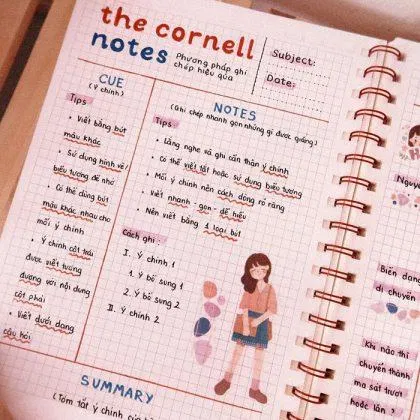 the cornell
notes
Phương pháp ghi
chép hiệu quả
Subject:
Date:
CUE
(ý chính)
Tips
• Viết bằng bút
màu khác
• Sử dụng hình vẽ/
biểu tượng để nhớ
• Có thể dùng bút
màu khác nhau cho
mỗi ý chính
• Ý chính cột trái
được viết tương
đương với nội dung
cột phải
• Viết dưới dạng
câu hỏi
NOTES
(Ghi chép nhanh gọn những gì được giảng)
Tips
• Lắng nghe và ghi cẩn thận ý chính
• Có thể viết tắt hoặc sử dụng biểu tượng
• Mỗi ý chính nên cách dòng rõ ràng
• Viết nhanh - gọn - dễ hiểu
• Nên viết bằng 1 loại bút
Cách ghi:
I. Ý chính 1
1. Ý bổ sung 1
2. Ý bổ sung 2
II. Ý chính 2
SUMMARY
(Tóm tắt ý chính của
Nguy
Biến dạng
di chuyển
Khi nào thì
chuyển thành
ma sát trượt
hoặc lăn